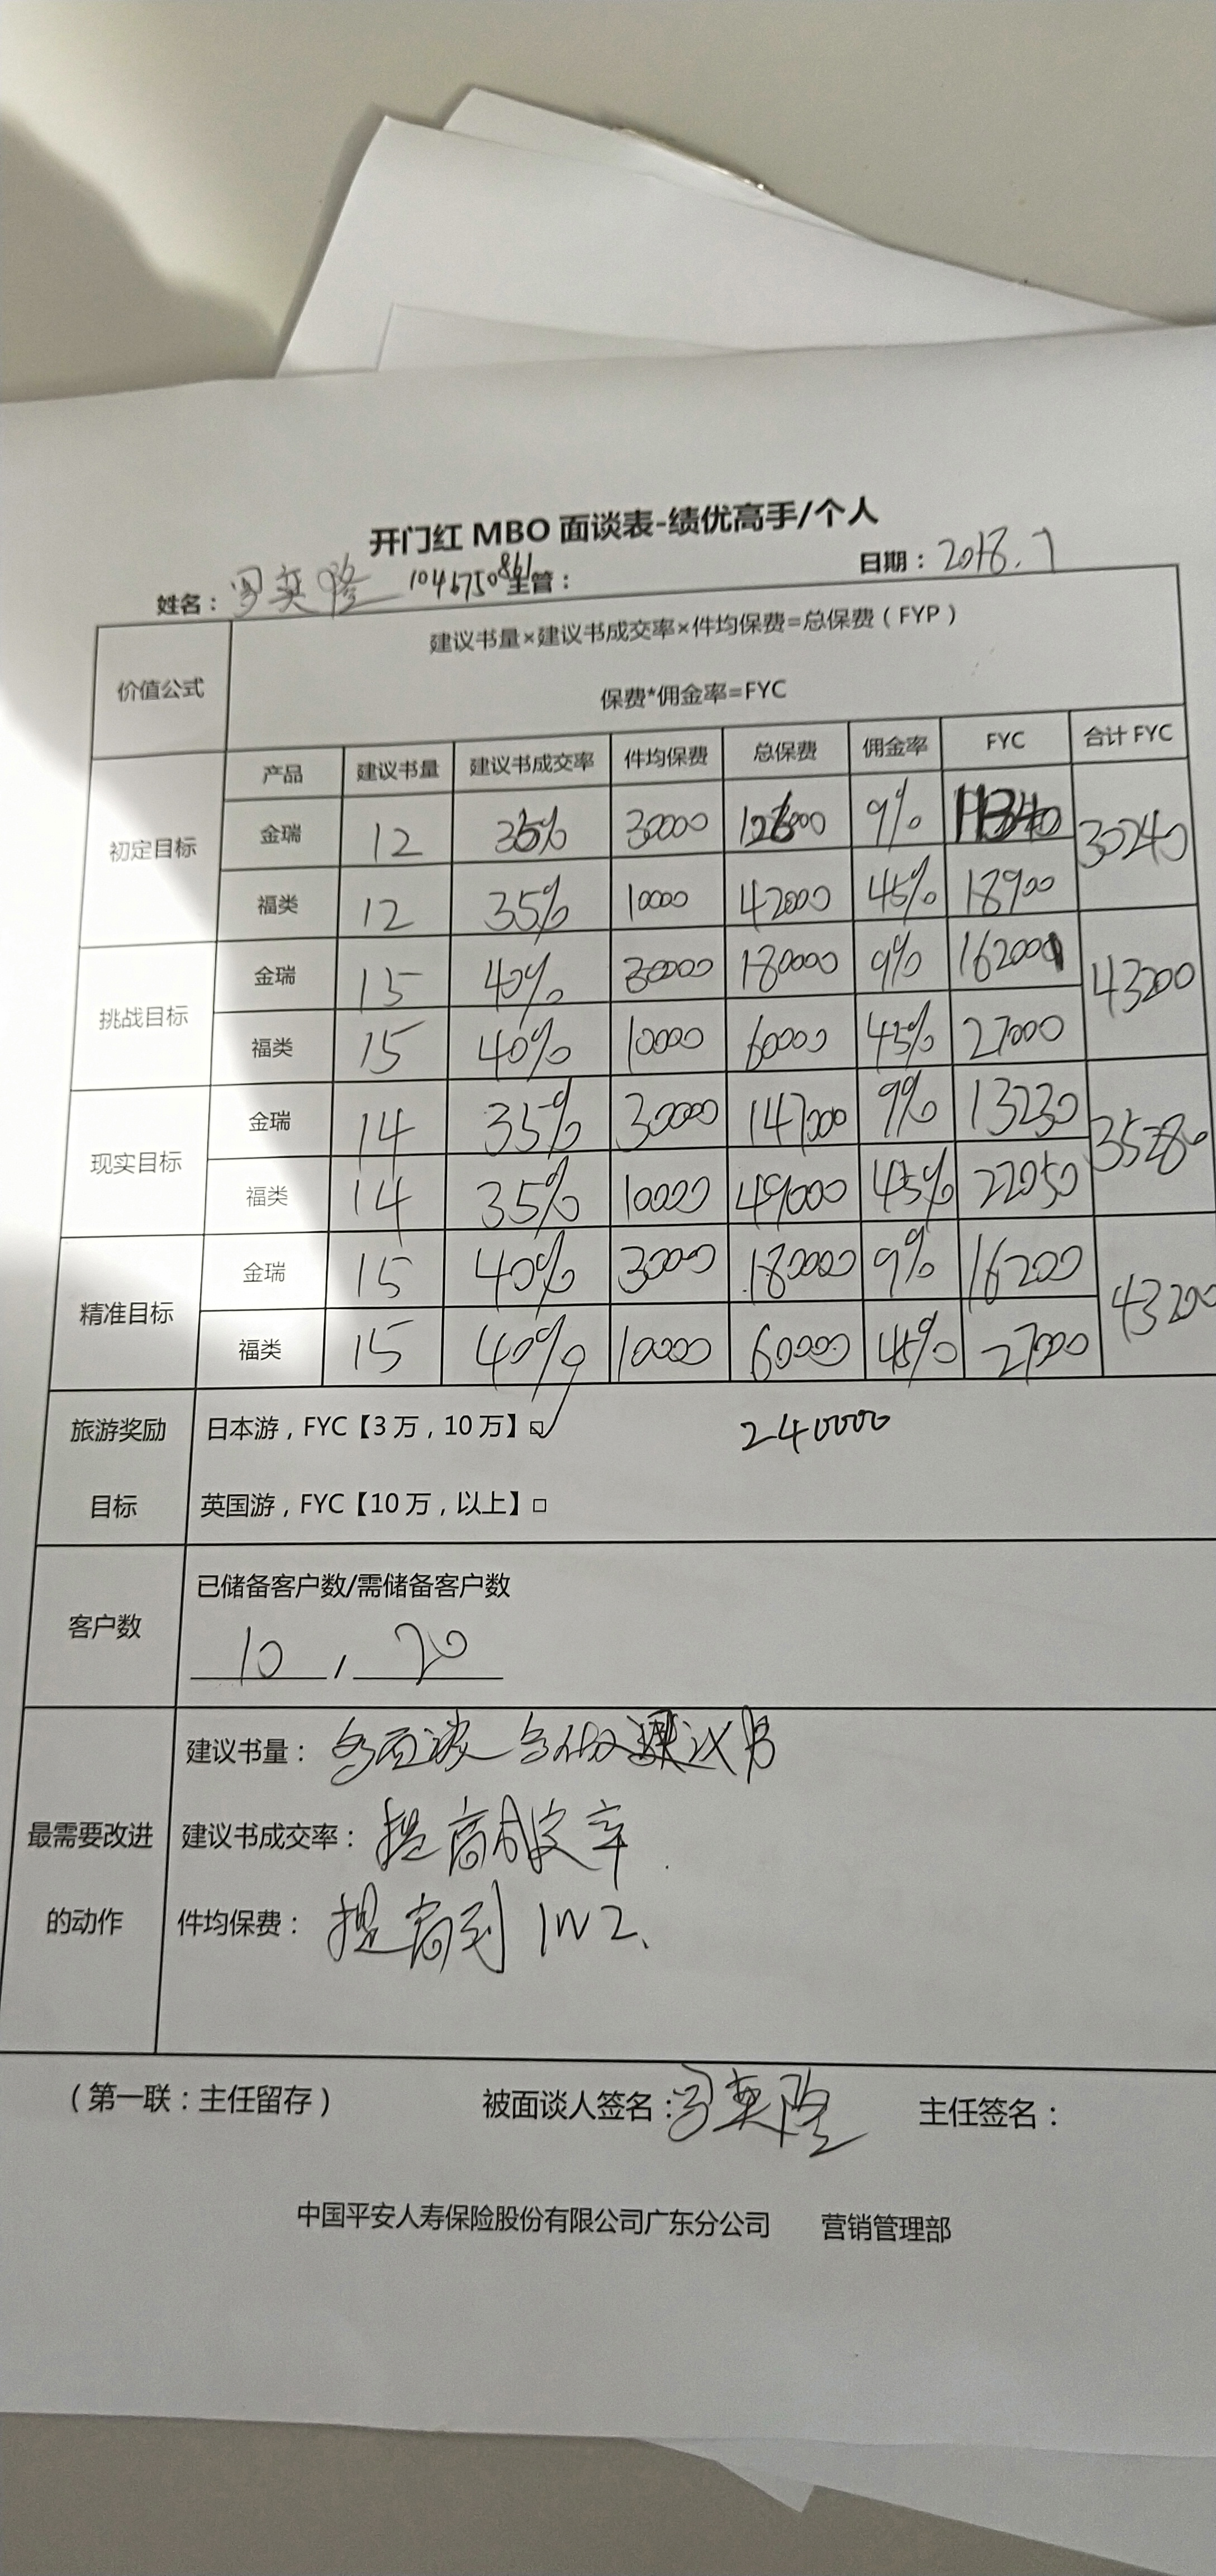 开门红 MBO 面谈表-绩优高手/个人
姓名： 罗奕隆 1046750861 主管： 日期：2018.7
价值公式 建议书量×建议书成交率×件均保费=总保费（FYP）
保费*佣金率=FYC
产品 建议书量 建议书成交率 件均保费 总保费 佣金率 FYC 合计 FYC
初定目标 金瑞 12 35% 30000 126000 9% 11340 30240
福类 12 35% 10000 42000 45% 18900
挑战目标 金瑞 15 40% 30000 180000 9% 16200 43200
福类 15 40% 10000 60000 45% 27000
现实目标 金瑞 14 35% 30000 147000 9% 13230 35280
福类 14 35% 10000 49000 45% 22050
精准目标 金瑞 15 40% 30000 180000 9% 16200 43200
福类 15 40% 10000 60000 45% 27000
旅游奖励 日本游，FYC【3 万，10 万】☑ 240000
目标 英国游，FYC【10 万，以上】□
客户数 已储备客户数/需储备客户数
10 / 20
建议书量： 多面谈 多做建议书
最需要改进 建议书成交率： 提高成交率
的动作 件均保费： 提高到 1W2、
（第一联：主任留存） 被面谈人签名：罗奕隆 主任签名：
中国平安人寿保险股份有限公司广东分公司 营销管理部